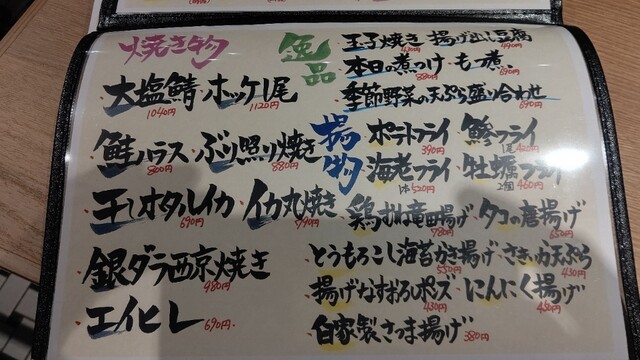 焼き物
大塩鯖 1040円 ・ホッケ1尾 1120円
・鮭ハラス 800円 ・ぶり照り焼き 880円
・干しホタルイカ 690円 ・イカ丸焼き 790円
・銀ダラ西京焼き 980円
・エイヒレ 690円
逸品
・玉子焼き 430円 ・揚げ出し豆腐 490円
・本日の煮つけ 880円 ・もつ煮 690円
・季節野菜の天ぷら盛り合わせ 690円
揚物
・ポテトフライ 390円 ・鯵フライ
・海老フライ 1本 520円 ・牡蠣フライ 2個 460円
・鶏むね竜田揚げ 780円 ・タコの唐揚げ 650円
・とうもろこし海苔かき揚げ 550円 ・さきいか天ぷら 430円
・揚げなすおろしポン酢 430円 ・にんにく揚げ 450円
・自家製さつま揚げ 380円